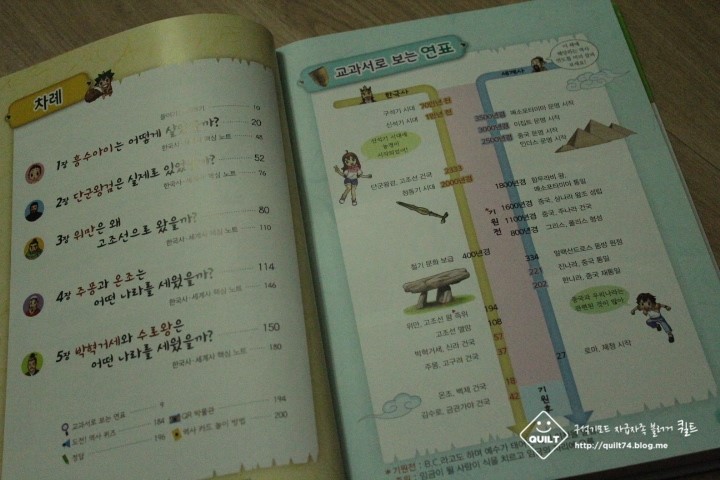 차례
10
1장 흥수아이는 어떻게 20
한국사·세계사 핵심 노트 48
2장 단군왕검은 실제로 52
한국사·세계사 핵심 노트 76
3장 위만은 왜
고조선으로 왔을까? 80
한국사·세계사 핵심 노트 110
4장 주몽과 온조는
어떤 나라를 세웠을까? 114
한국사·세계사 핵심 노트 146
5장 박혁거세와 수로왕은
어떤 나라를 세웠을까? 150
한국사·세계사 핵심 노트 180
교과서로 보는 연표 8
도전! 역사 퀴즈 184
정답 196
QR 박물관 194
역사 카드 놀이 방법 200
교과서로 보는 연표
한국사
구석기 시대 70만년 전
신석기 시대 1만년 전
신석기 시대에
농경이
시작되었어!
2333
단군왕검, 고조선 건국 2000년경
청동기 시대
철기 문화 보급 400년경
194
위만, 고조선 왕 즉위 108
고조선 멸망
박혁거세, 신라 건국 57
주몽, 고구려 건국 37
온조, 백제 건국 18
김수로, 금관가야 건국 42
세계사
3500년경 메소포타미아 문명 시작
3000년경 이집트 문명 시작
2500년경 중국 문명 시작
인더스 문명 시작
1800년경 함무라비 왕,
메소포타미아 통일
기원전
1600년경 중국, 상나라 왕조 성립
1100년경 중국, 주나라 건국
800년경 그리스, 폴리스 형성
334 알렉산드로스 동방 원정
221 진나라, 중국 통일
202 한나라, 중국 재통일
중국과 우리나라는
관련된 것이 많아!
27 로마, 제정 시작
기원후
* 기원전 : B.C.라고도 하며 예수가
QUILT
쿠션기모드 자급자족 블로거 퀼트
http://quilt74.blog.me